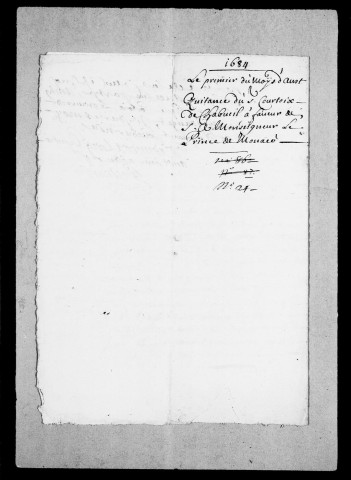 1684
Le premier du Moys d'aust
Quitance du S. Courtois
de Chabueil à faueur de
S. A. Monseigneur Le
Prince de Monaco
N° 24